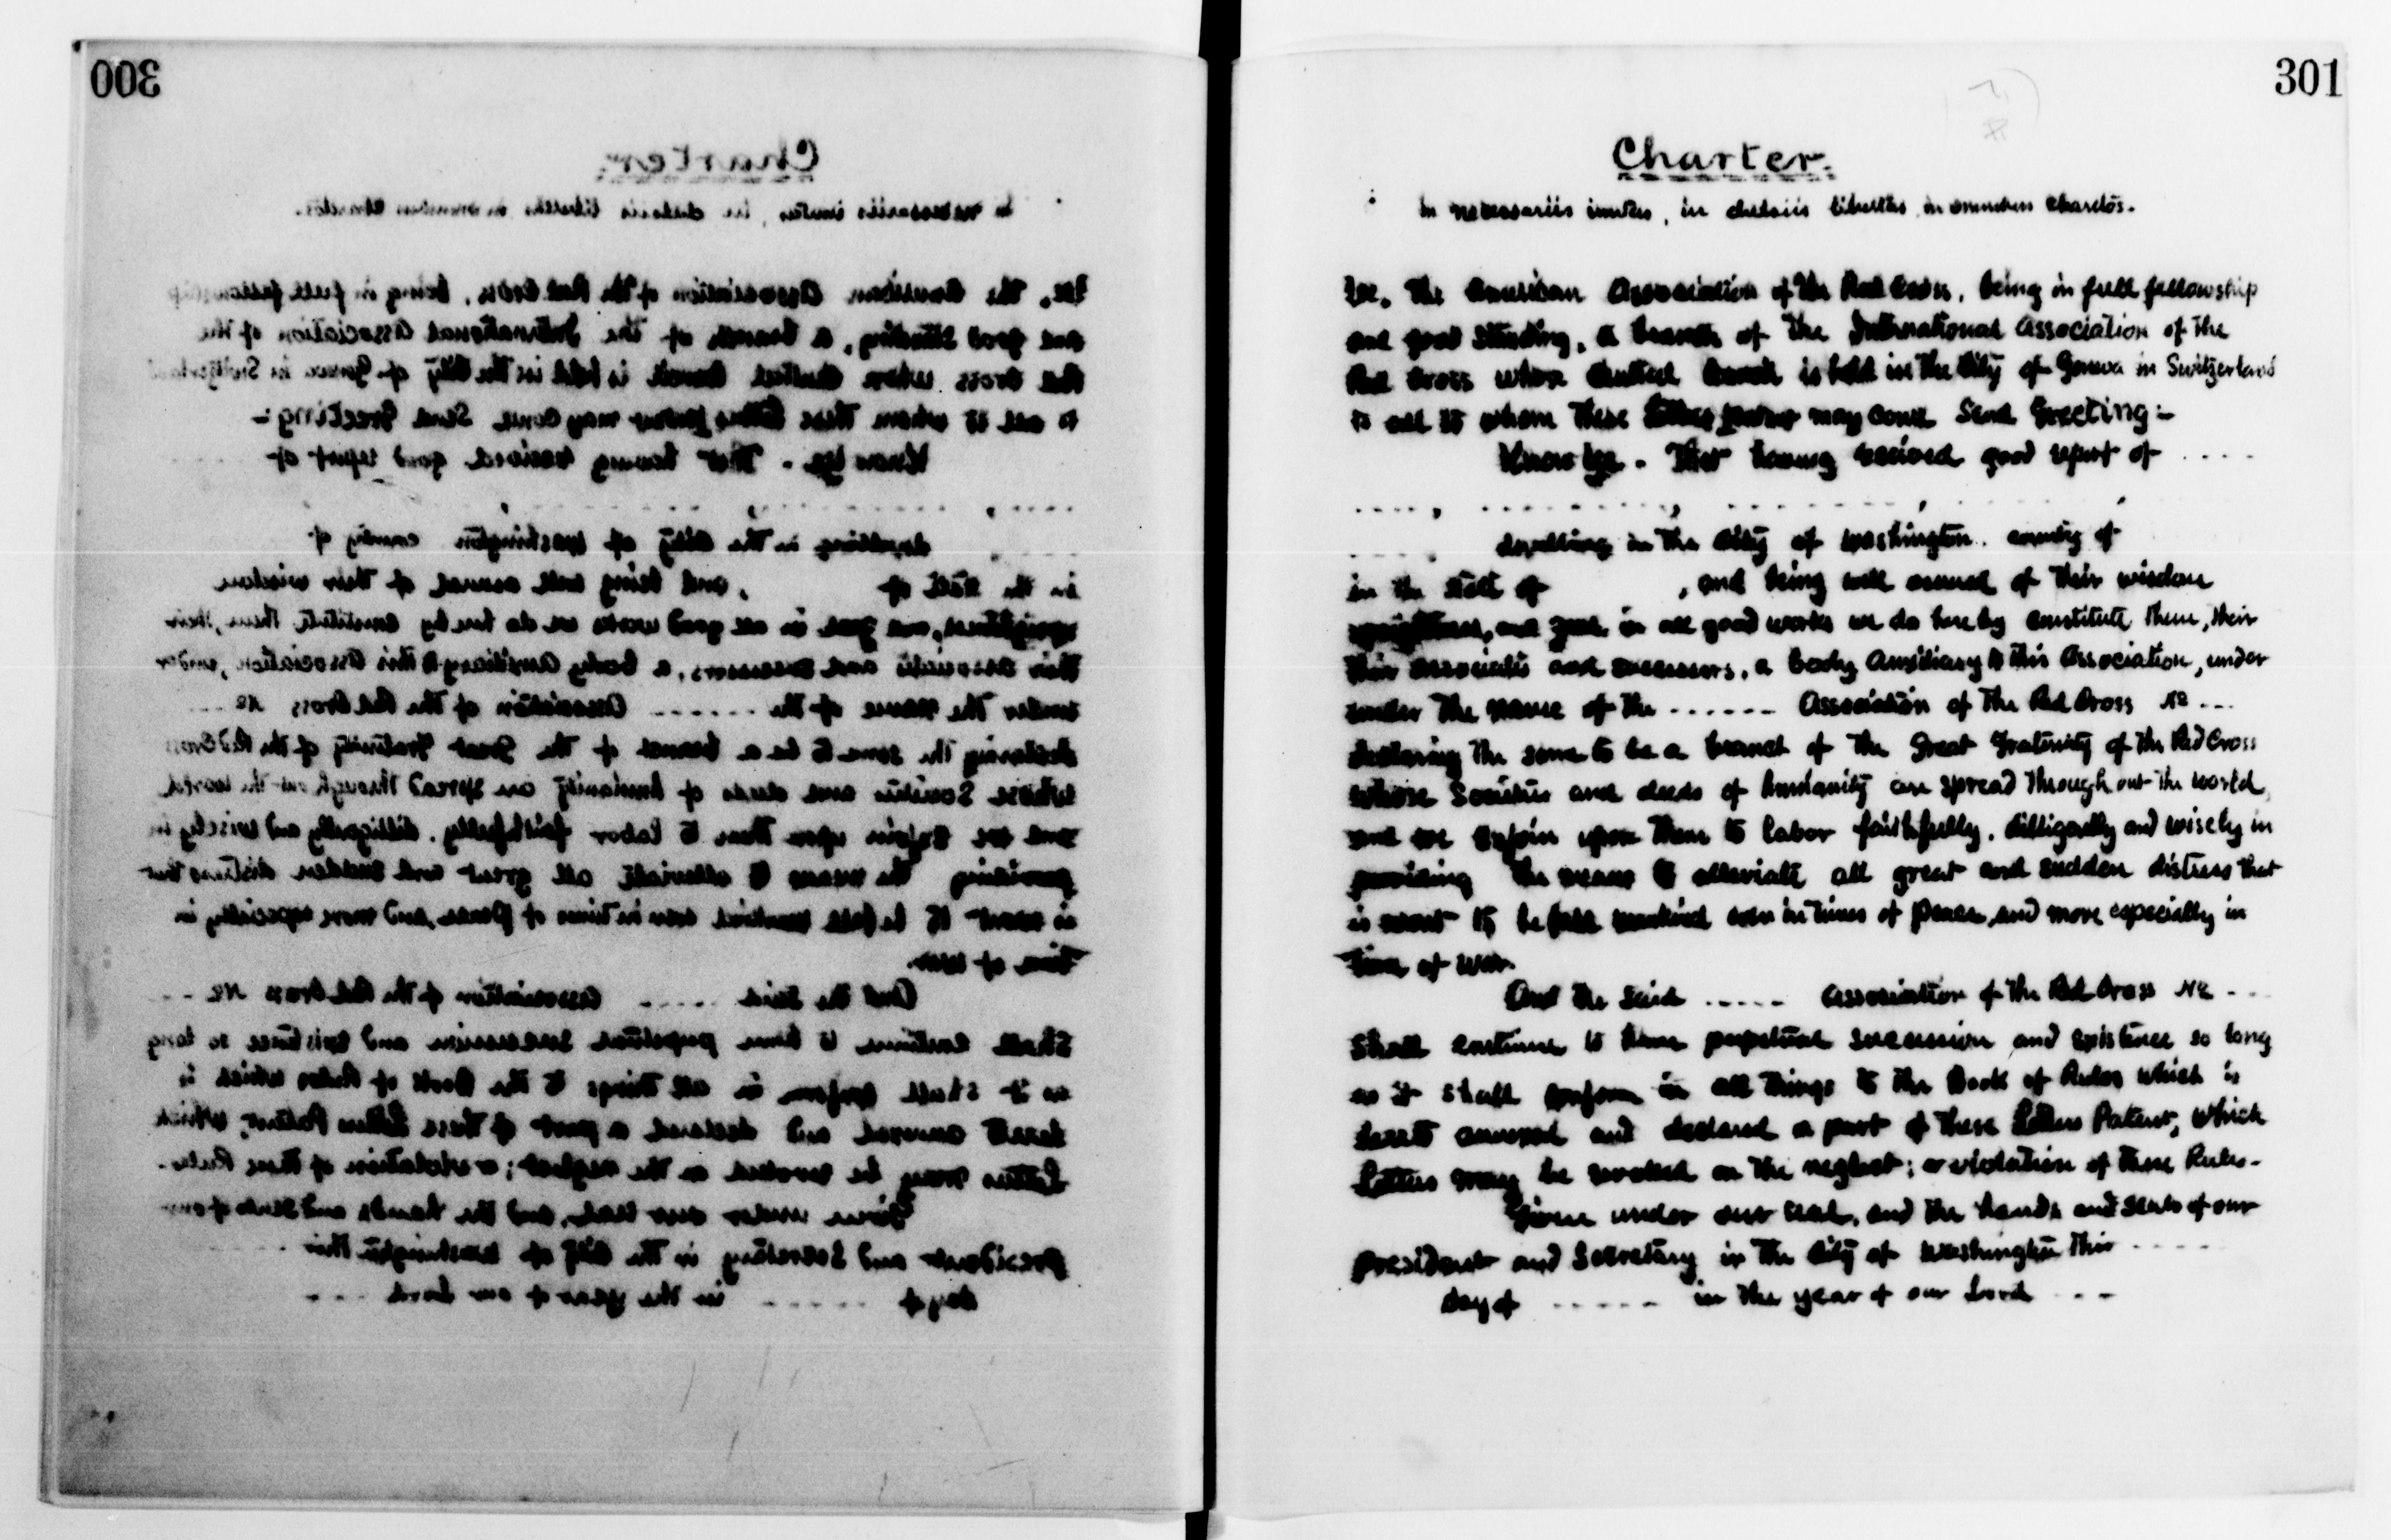 300
301
Charter.
in necessariis unitas, in dubiis libertas in omnibus charitas.
We, The American Association of the Red Cross, being in full fellowship
and good standing, a branch of The International Association of the
Red Cross whose Central branch is held in the City of Geneva in Switzerland
to all to whom these letters patent may come Send Greeting:-
Know Ye. That having received good report of ....
dwelling in the City of Washington. county of
in the State of , and being well assured of their wisdom
uprightness, and zeal in all good works we do hereby constitute them, their
their associates and successors, a body Auxiliary to this Association, under
under the name of the ...... Association of The Red Cross No ...
declaring the same to be a branch of the Great Fraternity of the Red Cross
whose Societies and deeds of humanity are spread through out the world,
and we enjoin upon them to labor faithfully, dilligently and wisely in
providing the means to alleviate all great and sudden distress that
is wont to befall mankind even in times of peace, and more especially in
time of war.
And the Said ..... Association of the Red Cross No ...
Shall continue to have perpetual succession and existence so long
as it shall conform in all things to the Book of Rules which is
hereto annexed and declared a part of these Letters Patent, which
Letters may be revoked on the neglect; or violation of these Rules.
Given under our seal, and the hands and Seals of our
President and Secretary in the City of Washington this ....
day of ..... in the year of our Lord ...